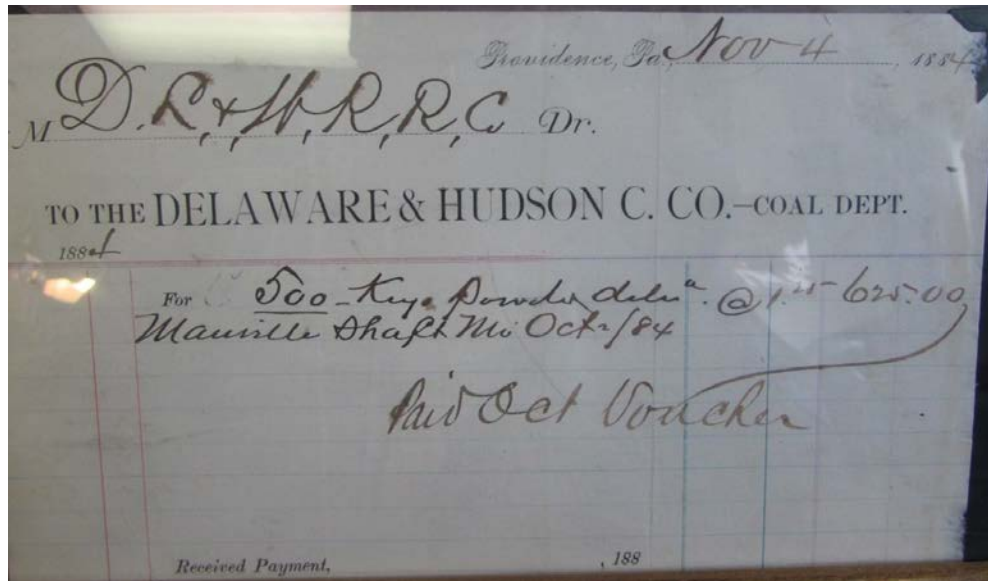 Providence, Pa., Nov 4, 1884
M D. L, & W, R, R, Co Dr.
TO THE DELAWARE & HUDSON C. CO.-COAL DEPT.
1884
For 500 Kegs Powder deld. @ 1.25 625.00
Manville Shaft Mo Oct /84
Paid Oct Voucher
Received Payment, , 188